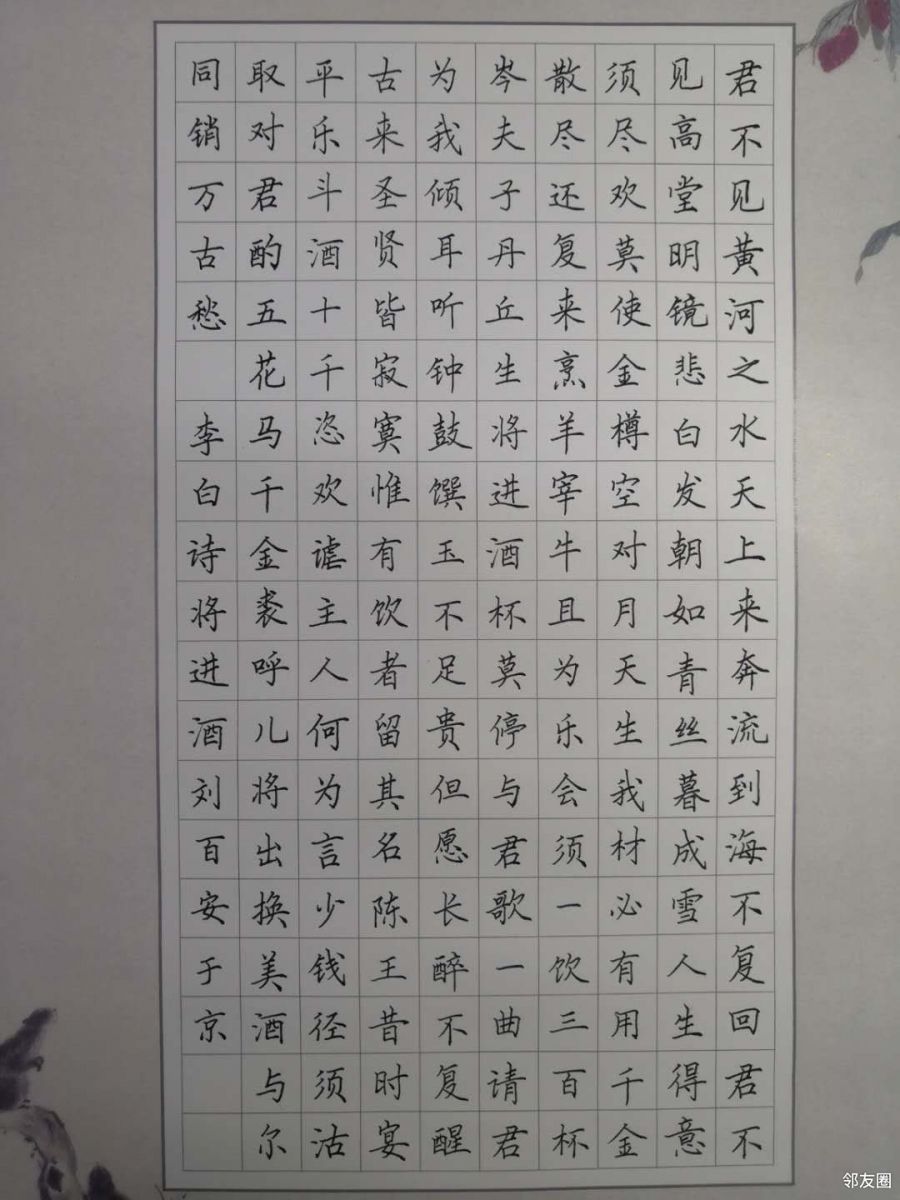 君不见黄河之水天上来奔流到海不复回君不
见高堂明镜悲白发朝如青丝暮成雪人生得意
须尽欢莫使金樽空对月天生我材必有用千金
散尽还复来烹羊宰牛且为乐会须一饮三百杯
岑夫子丹丘生将进酒杯莫停与君歌一曲请君
为我倾耳听钟鼓馔玉不足贵但愿长醉不复醒
古来圣贤皆寂寞惟有饮者留其名陈王昔时宴
平乐斗酒十千恣欢谑主人何为言少钱径须沽
取对君酌五花马千金裘呼儿将出换美酒与尔
同销万古愁 李白诗将进酒刘百安于京
邻友圈